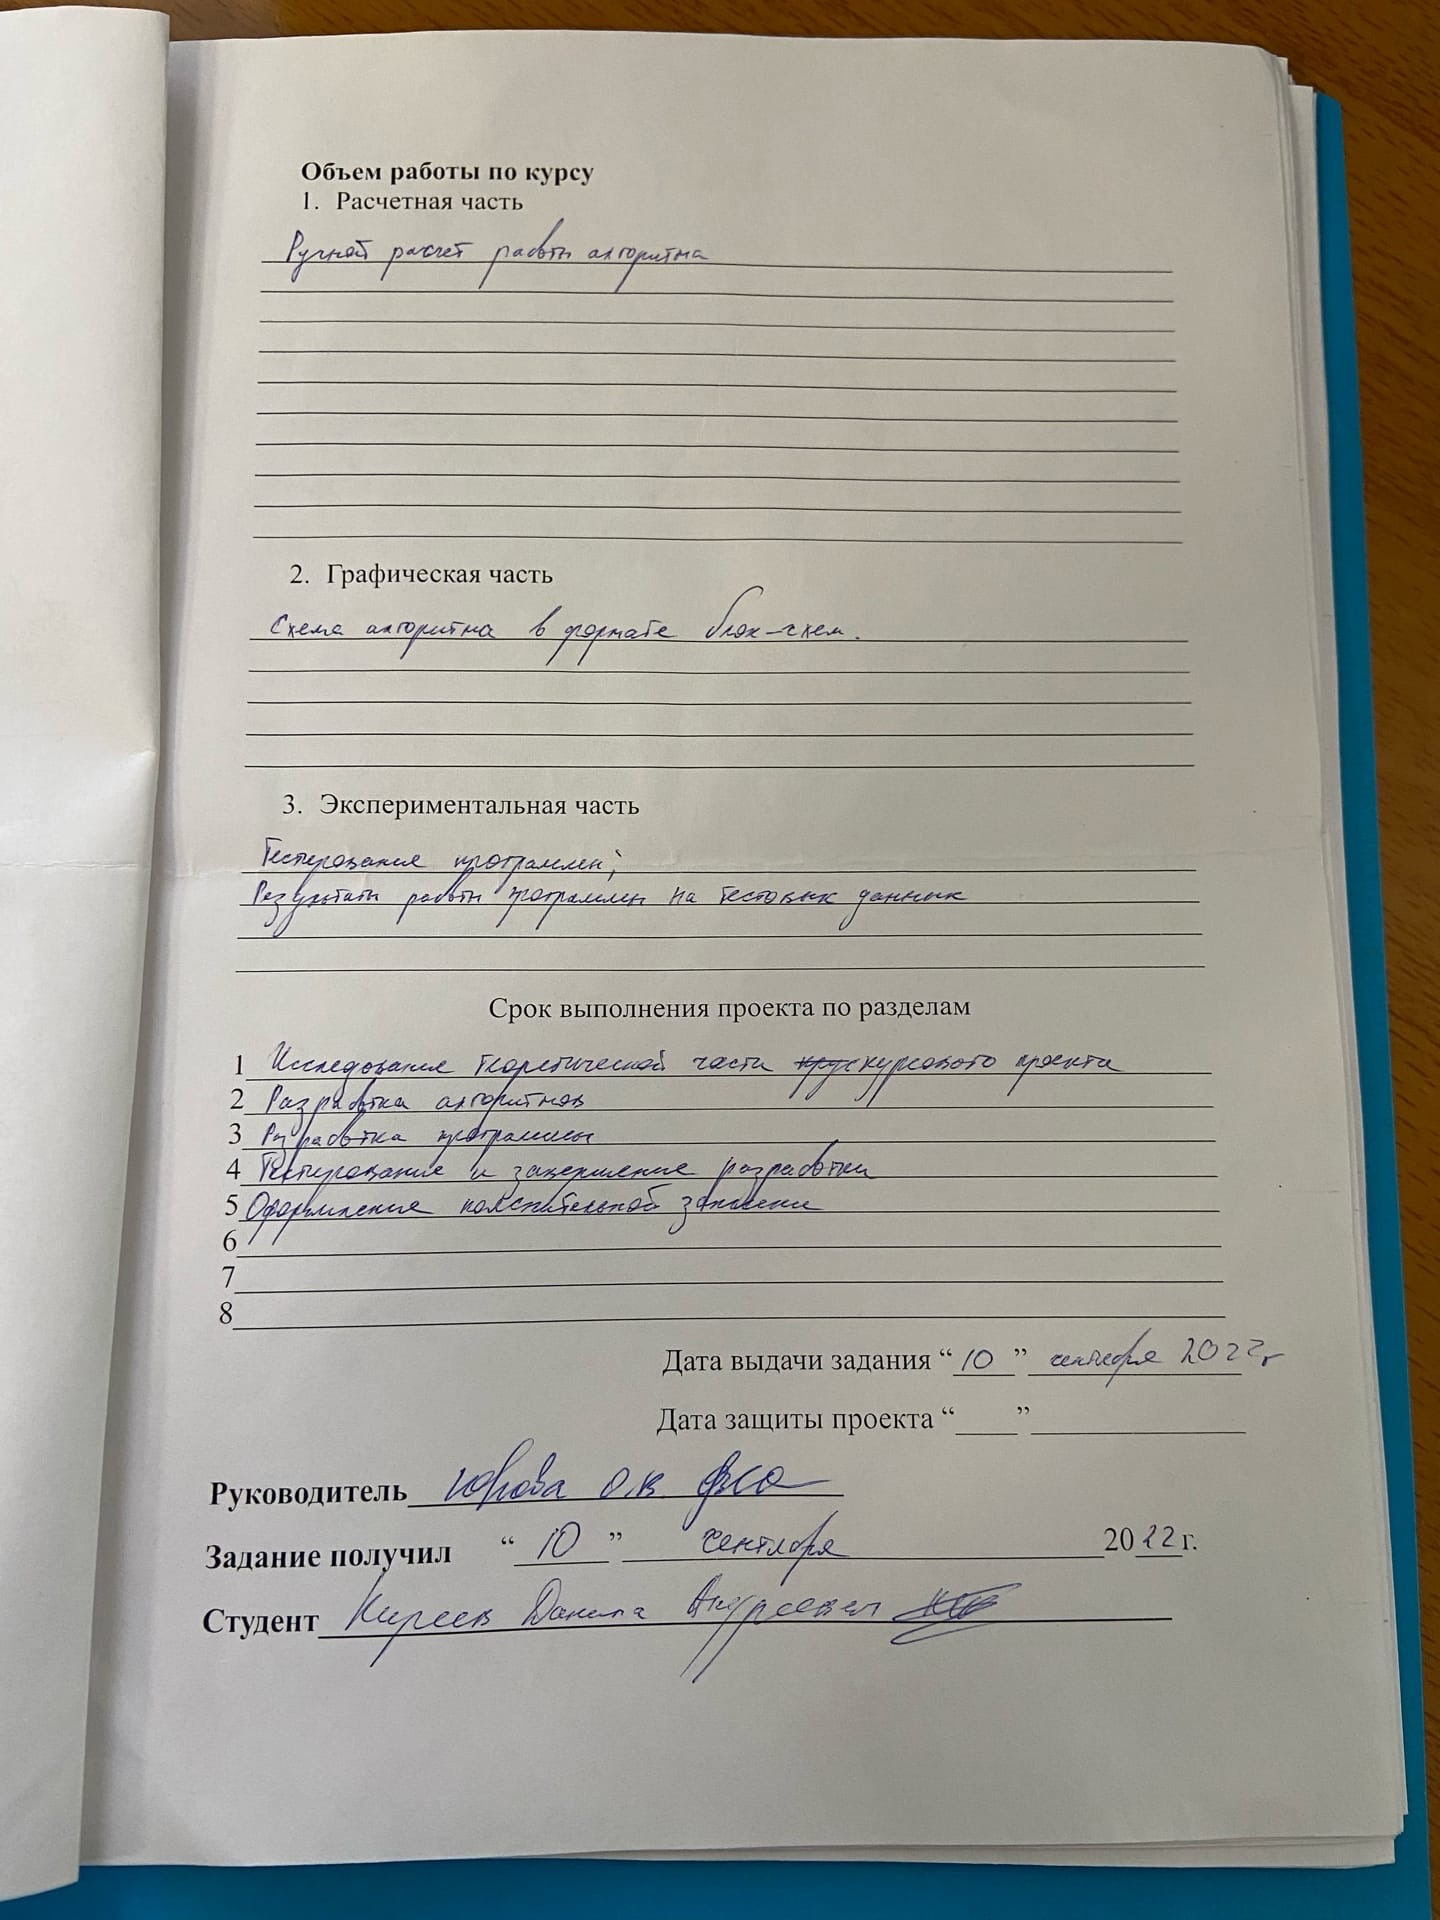 Объем работы по курсу
1. Расчетная часть
Ручной расчет работы алгоритма
2. Графическая часть
Схема алгоритма в формате блок-схем.
3. Экспериментальная часть
Тестирование программы;
Результаты работы программы на тестовых данных
Срок выполнения проекта по разделам
1 Исследование теоретической части курсового проекта
2 Разработка алгоритмов
3 Разработка программы
4 Тестирование и завершение разработки
5 Оформление пояснительной записки
6
7
8
Дата выдачи задания “10” сентября 2022г
Дата защиты проекта “____”
Руководитель Юрова О.В.
Задание получил “10” сентября 2022г.
Студент Киреев Данила Андреевич